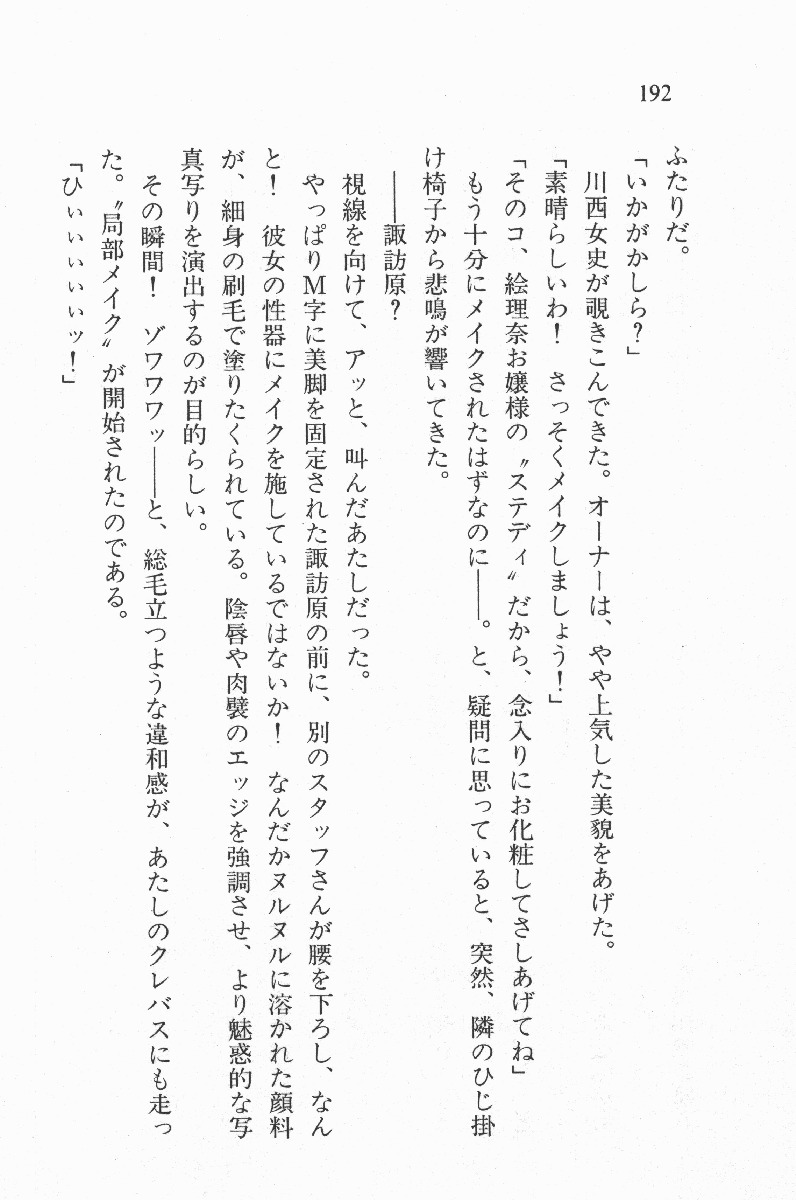 192
ふたりだ。
「いかがかしら?」
　川西女史が覗きこんできた。オーナーは、やや上気した美貌をあげた。
「素晴らしいわ!　さっそくメイクしましょう!」
「そのコ、絵理奈お嬢様の〝ステディ〟だから、念入りにお化粧してさしあげてね」
　もう十分にメイクされたはずなのに――。と、疑問に思っていると、突然、隣のひじ掛
け椅子から悲鳴が響いてきた。
　――諏訪原?
　視線を向けて、アッと、叫んだあたしだった。
　やっぱりM字に美脚を固定された諏訪原の前に、別のスタッフさんが腰を下ろし、なん
と!　彼女の性器にメイクを施しているではないか!　なんだかヌルヌルに溶かれた顔料
が、細身の刷毛で塗りたくられている。陰唇や肉襞のエッジを強調させ、より魅惑的な写
真写りを演出するのが目的らしい。
　その瞬間!　ゾワワワッ――と、総毛立つような違和感が、あたしのクレバスにも走っ
た。〝局部メイク〟が開始されたのである。
「ひぃぃぃぃぃッ!」